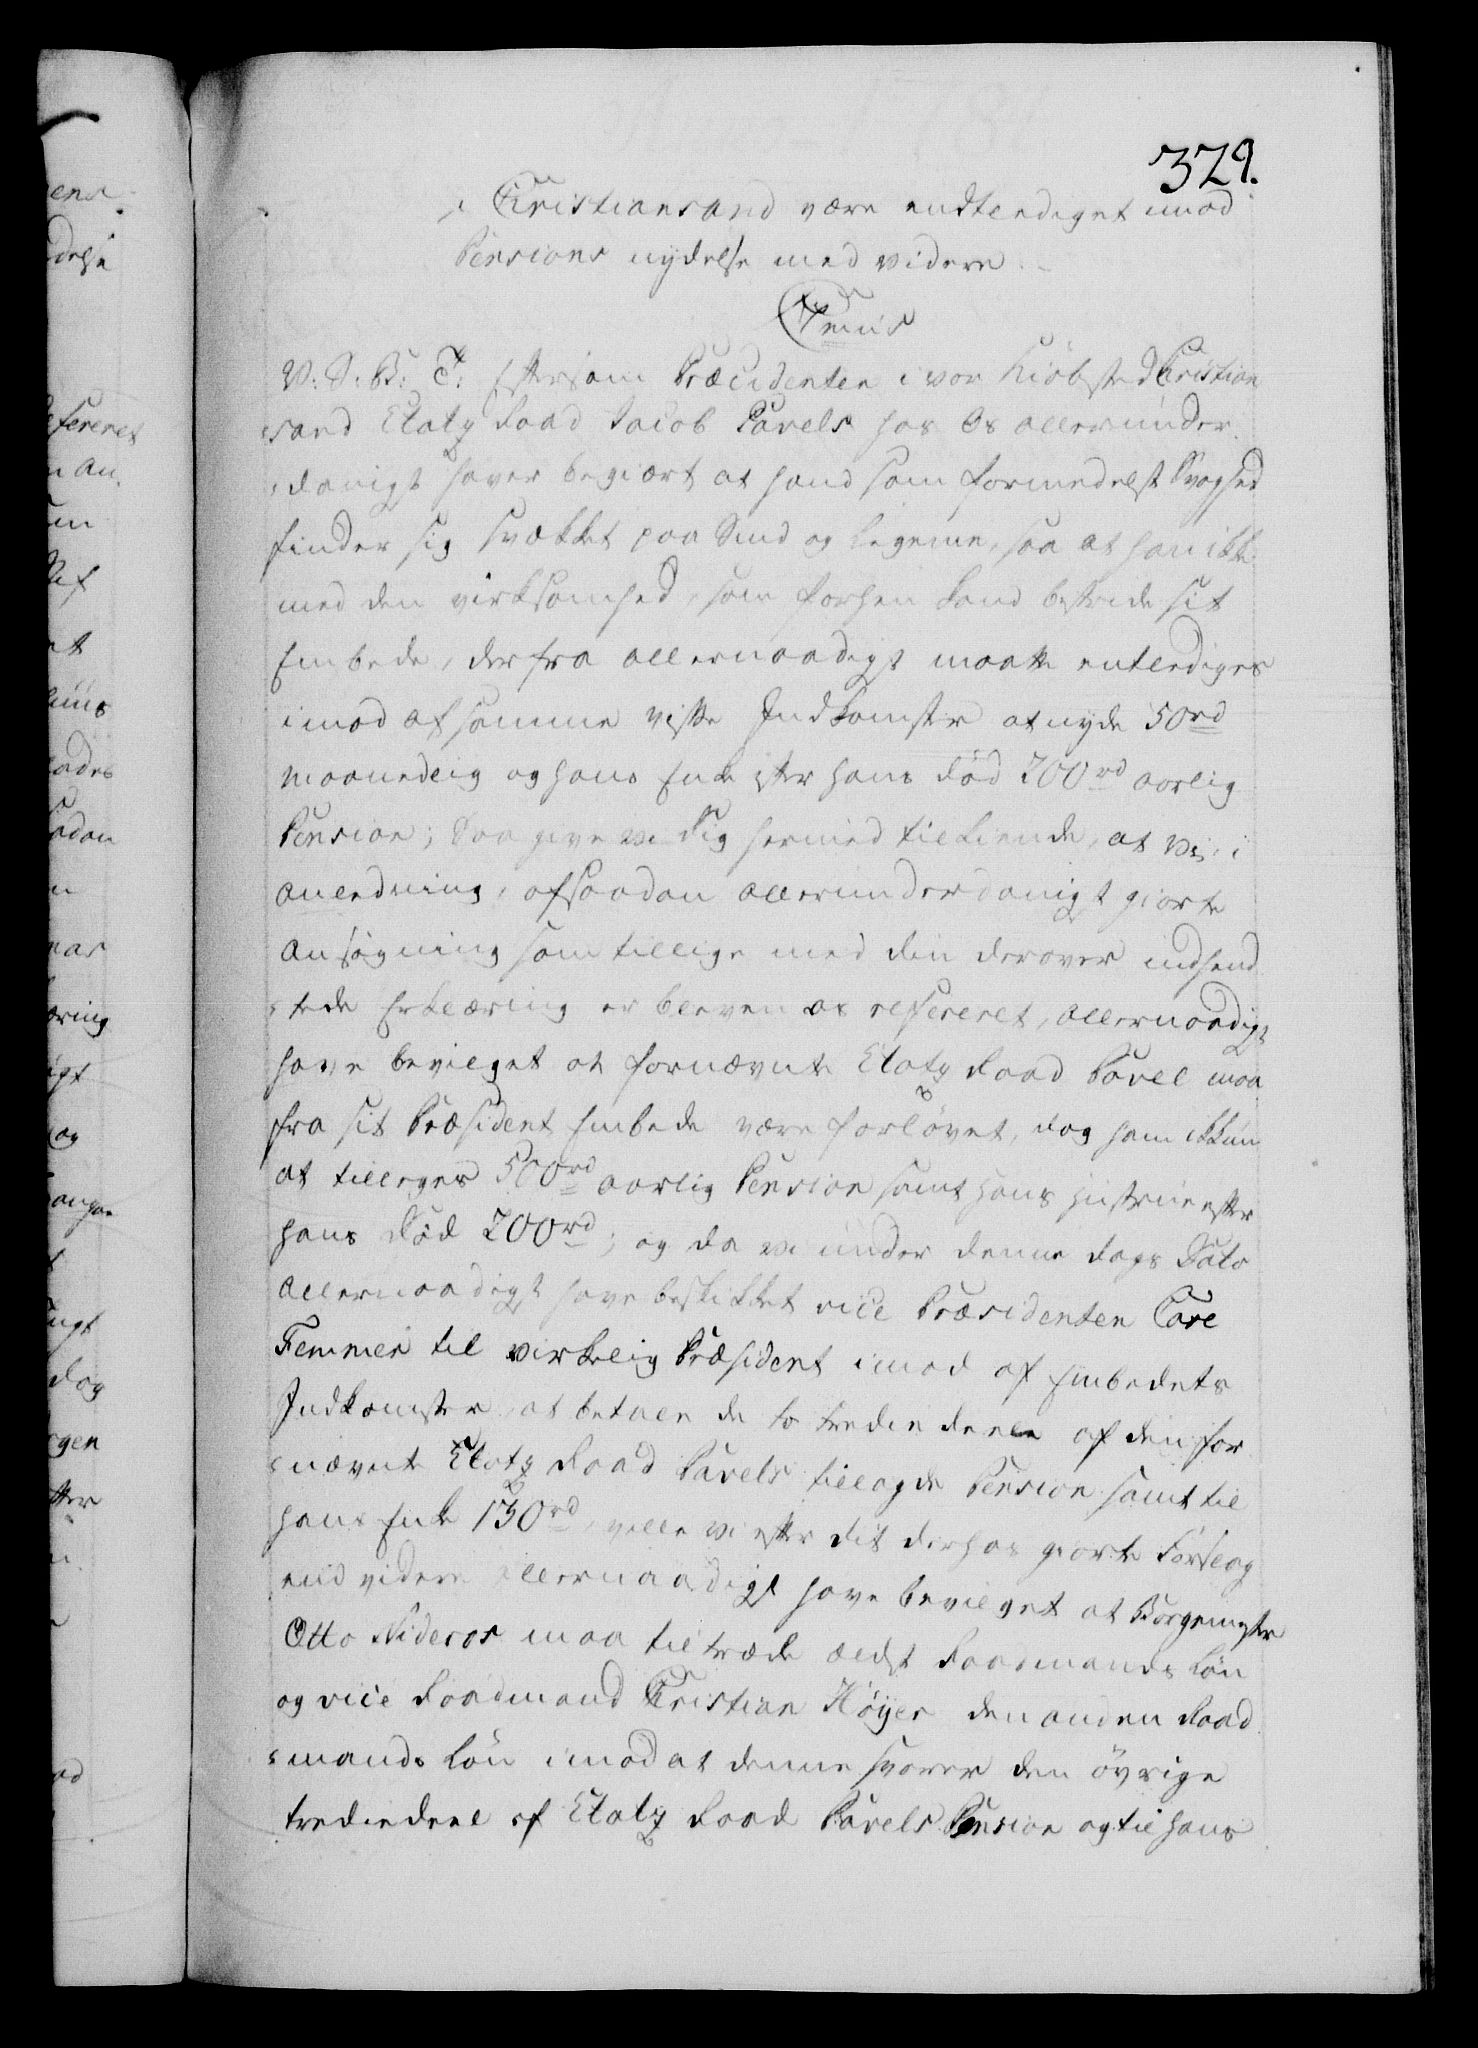 329.
i Christiansand være endtlediget imod
Pensions nydelse med videre.
V: S: B: T: Eftersom Præcidenten i vor Kiöbsted Christian
sand Etatz Raad Jacob Pavels hos Os allerunder
danigt haver begiært at hand som formedelst Svaghed
finder sig svækket paa Sind og Legeme, saa at han ikke
med den virksomhed, som forhen kand bestride sit
Embede, derfra allernaadigst maatte entlediges
imod af samme visse Indkomster at nyde 50 rd
maanedlig og hans Enke efter hans död 200 rd aarlig
Pension; Saa give vi dig hermed tilkiende, at vi, i
anledning, af saadan allerunderdanigst giorte
Ansögning som tillige med din derover indsend
tede Erklæring er bleven os refereret, allernaadigst
have bevilget at fornævnte Etatz Raad Pavel maa
fra sit Præsident Embede være forlövet, dog ham ikkun
at tillegges 500 rd aarlig Pension samt hans Hustrue efter
hans Död 200 rd; og da vi under denne dags Dato
allernaadigst have beskikket vice Præsidenten Carl
Femmer til virkelig Præsident imod af Embedets
Indkomster at betale de to tredie deele af den for
nævnte Etatz Raad Pavels tillagde Pension samt til
hans Enke 130 rd, ville vi efter dit derhos giorte Forslag
end videre allernaadigst have bevilget at Borgemester
Otto Nideros maa tiltræde ældst Raadmands Lön
og vice Raadmand Christian Höyer den anden Raad
mands Lön imod at denne svarer den övrige
trediedeel af Etatz Raad Pavels Pension og til hans